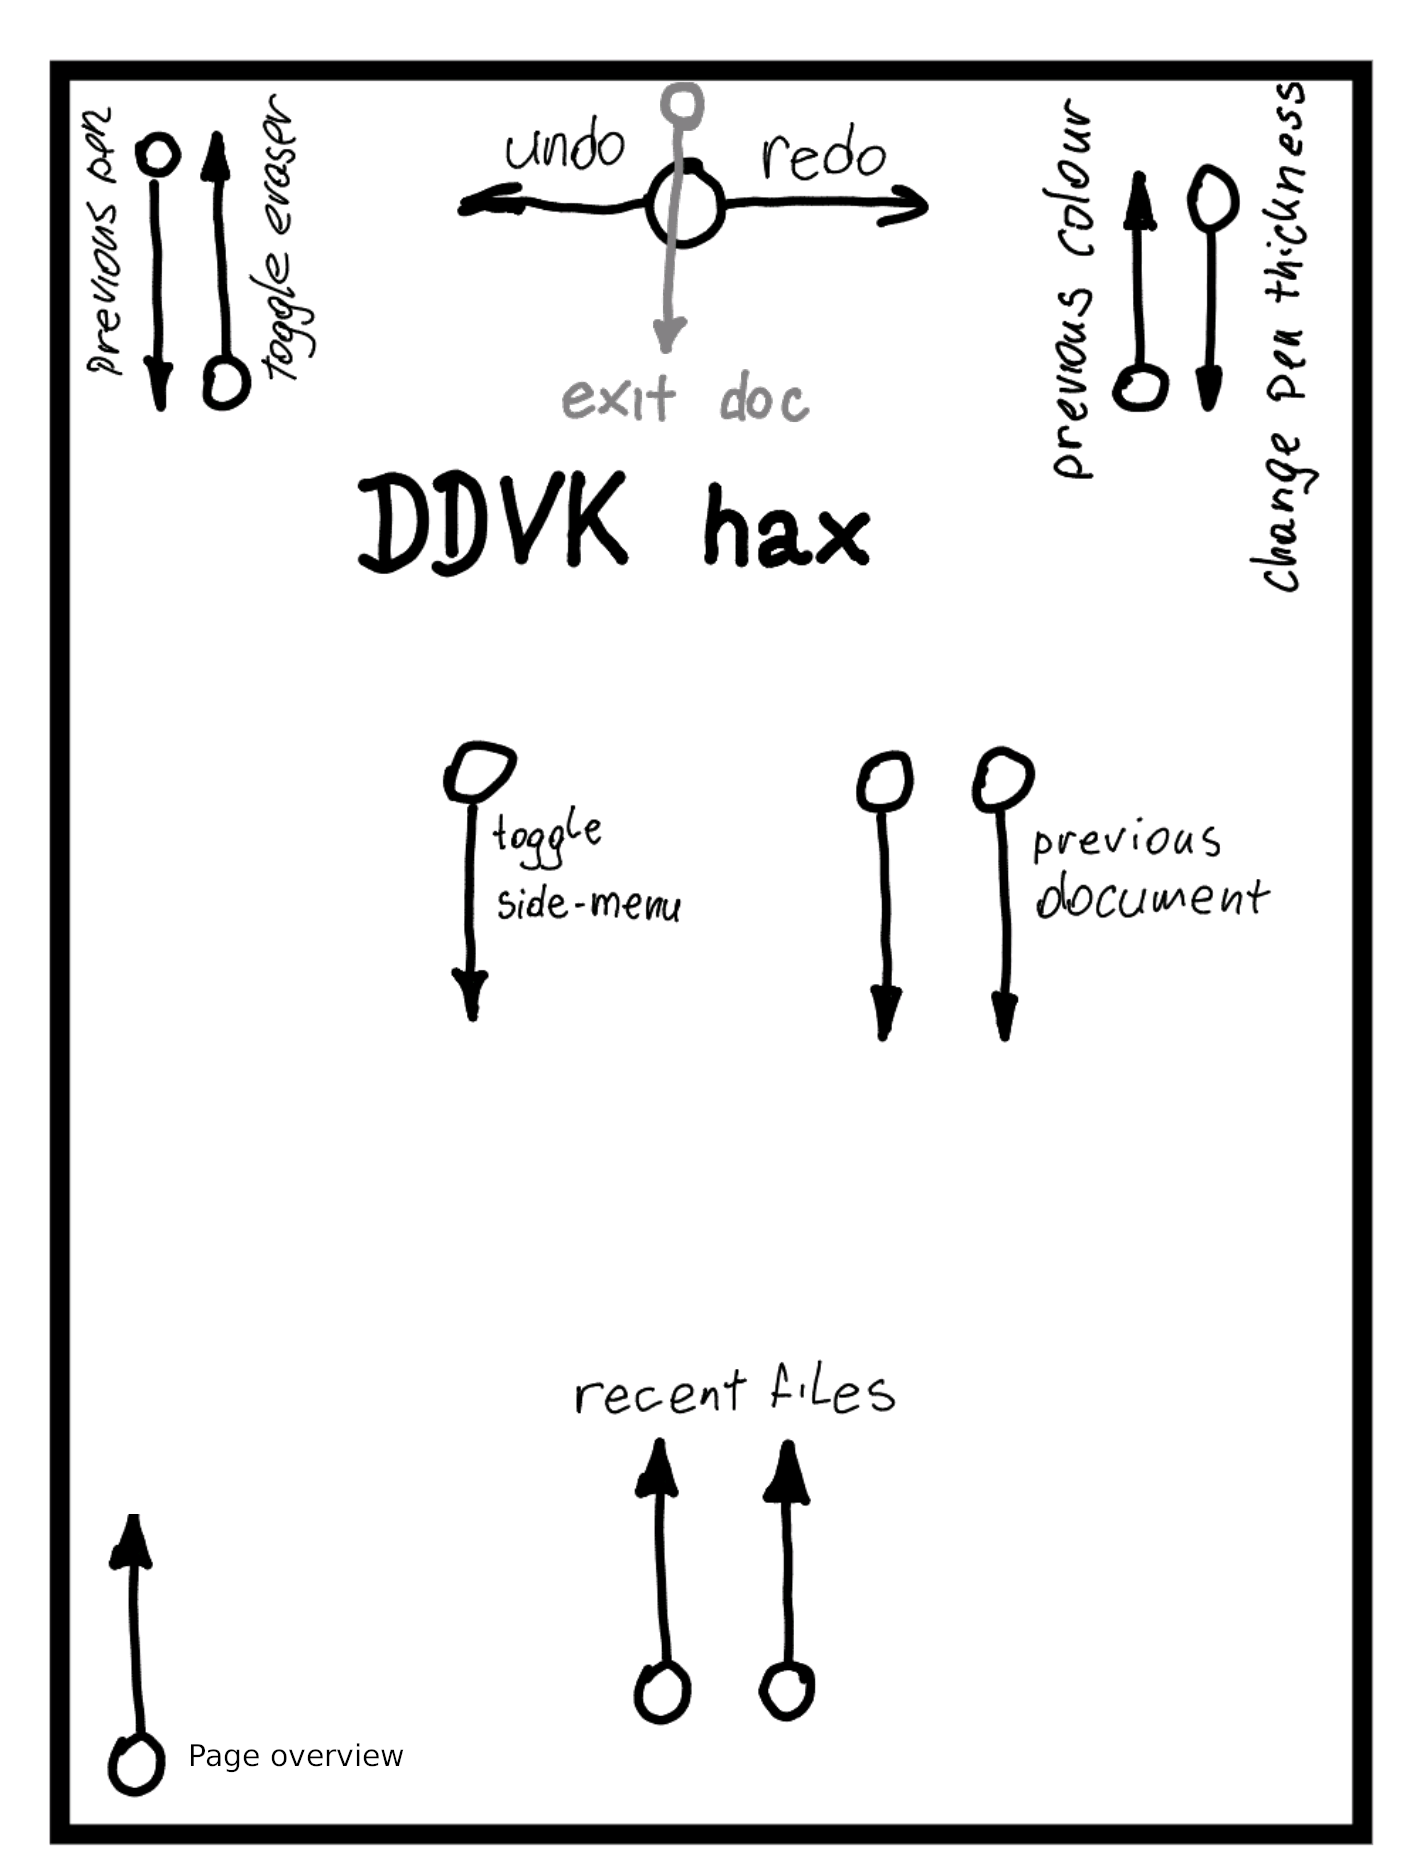 previous pen
toggle eraser
undo
redo
previous colour
change pen thickness
exit doc
DDVK hax
toggle
side-menu
previous
document
recent files
Page overview